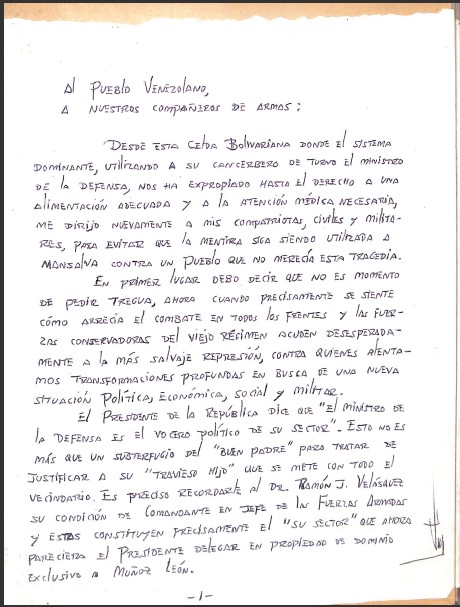 Al Pueblo Venezolano,
A nuestros compañeros de armas:
Desde esta Celda Bolivariana donde el sistema
dominante, utilizando a su cancerbero de turno el ministro
de la Defensa, nos ha expropiado hasta el derecho a una
alimentación adecuada y a la atención médica necesaria,
me dirijo nuevamente a mis compatriotas, civiles y milita-
res, para evitar que la mentira siga siendo utilizada a
mansalva contra un Pueblo que no merecía esta tragedia.
En primer lugar debo decir que no es momento
de pedir tregua, ahora cuando precisamente se siente
cómo arrecia el combate en todos los frentes y las fuer-
zas conservadoras del viejo régimen acuden desesperada-
mente a la más salvaje represión, contra quienes alenta-
mos transformaciones profundas en busca de una nueva
situación Política, Económica, social y militar.
El Presidente de la República dice que "el ministro de
la Defensa es el vocero político de su sector". Esto no es
más que un subterfugio del "buen padre" para tratar de
justificar a su "travieso hijo" que se mete con todo el
vecindario. Es preciso recordarle al Dr. Ramón J. Velásquez
su condición de Comandante en Jefe de las Fuerzas Armadas
y éstas constituyen precisamente el "su sector" que ahora
pareciera el Presidente delegar en propiedad de dominio
exclusivo a Muñoz León.
-1-